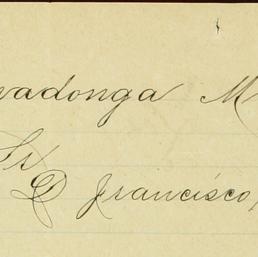 vadonga M
Sr
D Francisco,